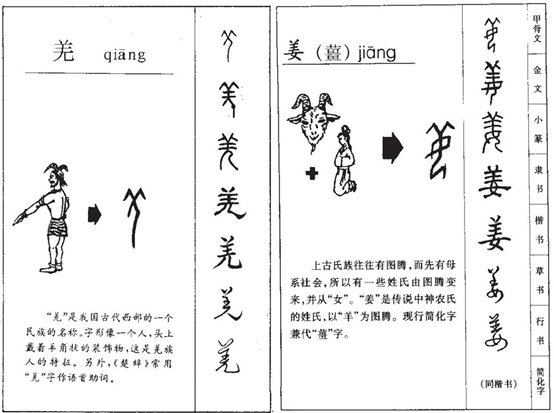 羌 qiāng
“羌”是我国古代西部的一个
民族的名称。字形像一个人,头上
戴着羊角状的装饰物,这是羌族
人的特征。另外,《楚辞》常用
“羌”字作语首助词。
姜(薑)jiāng
上古氏族往往有图腾,而先有母
系社会,所以有一些姓氏由图腾变
来,并从“女”。“姜”是传说中神农氏
的姓氏,以“羊”为图腾。现行简化字
兼代“薑”字。
甲骨文
金文
小篆
隶书
楷书
草书
行书
简化字
羌
羌
羌
羌
姜
姜
姜
姜
(同楷书)